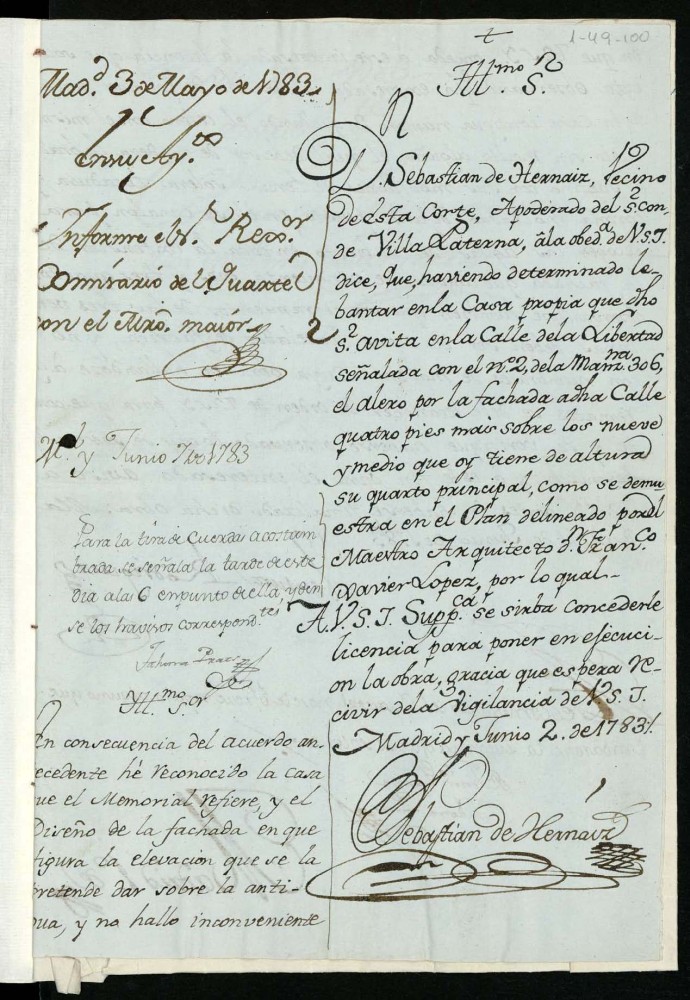 1-49-100
Mad.d 3 de Mayo de 1783
En su Ay.to
Informe el S.r Rex.or
Comisario del Quartel
con el Mro. maior
M.d y Junio 7 de 1783
Para la tira de Cuerda acostum
brada se señala la tarde de este
Dia a las 6 en punto de ella, y den
se los havisos correspond.tes
Yll.mo S.or
En consecuencia del acuerdo an-
tecedente hé reconocido la casa
que el Memorial refiere, y el
Diseño de la fachada en que
figura la elevacion que se la
pretende dar sobre la anti-
gua, y no hallo inconveniente
+
Ill.mo S.r
D. Sebastian de Hernaiz, Vecino
de esta Corte, Apoderado del S.r Con-
de Villa Paterna, â la obed.a de V.S.I.
dice, Que, haviendo determinado le-
bantar en la Casa propia que dho
S.r avita en la Calle de la Libertad
señalada con el n.o 2, de la Manz.na 306,
el alero por la fachada a dha Calle
quatro pies mais sobre los nueve
y medio que oy tiene de altura
su quarto principal, como se demu
estra en el Plan delineado por el
Maestro Arquitecto d.n Fran.co
Xavier Lopez, por lo qual-
A V.S.I. Supp.ca se sirba concederle
licencia para poner en ejecuci-
on la obra, gracia que espera re-
civir de la Vigilancia de V.S.I.
Madrid y Junio 2. de 1783
Sebastian de Hernaiz